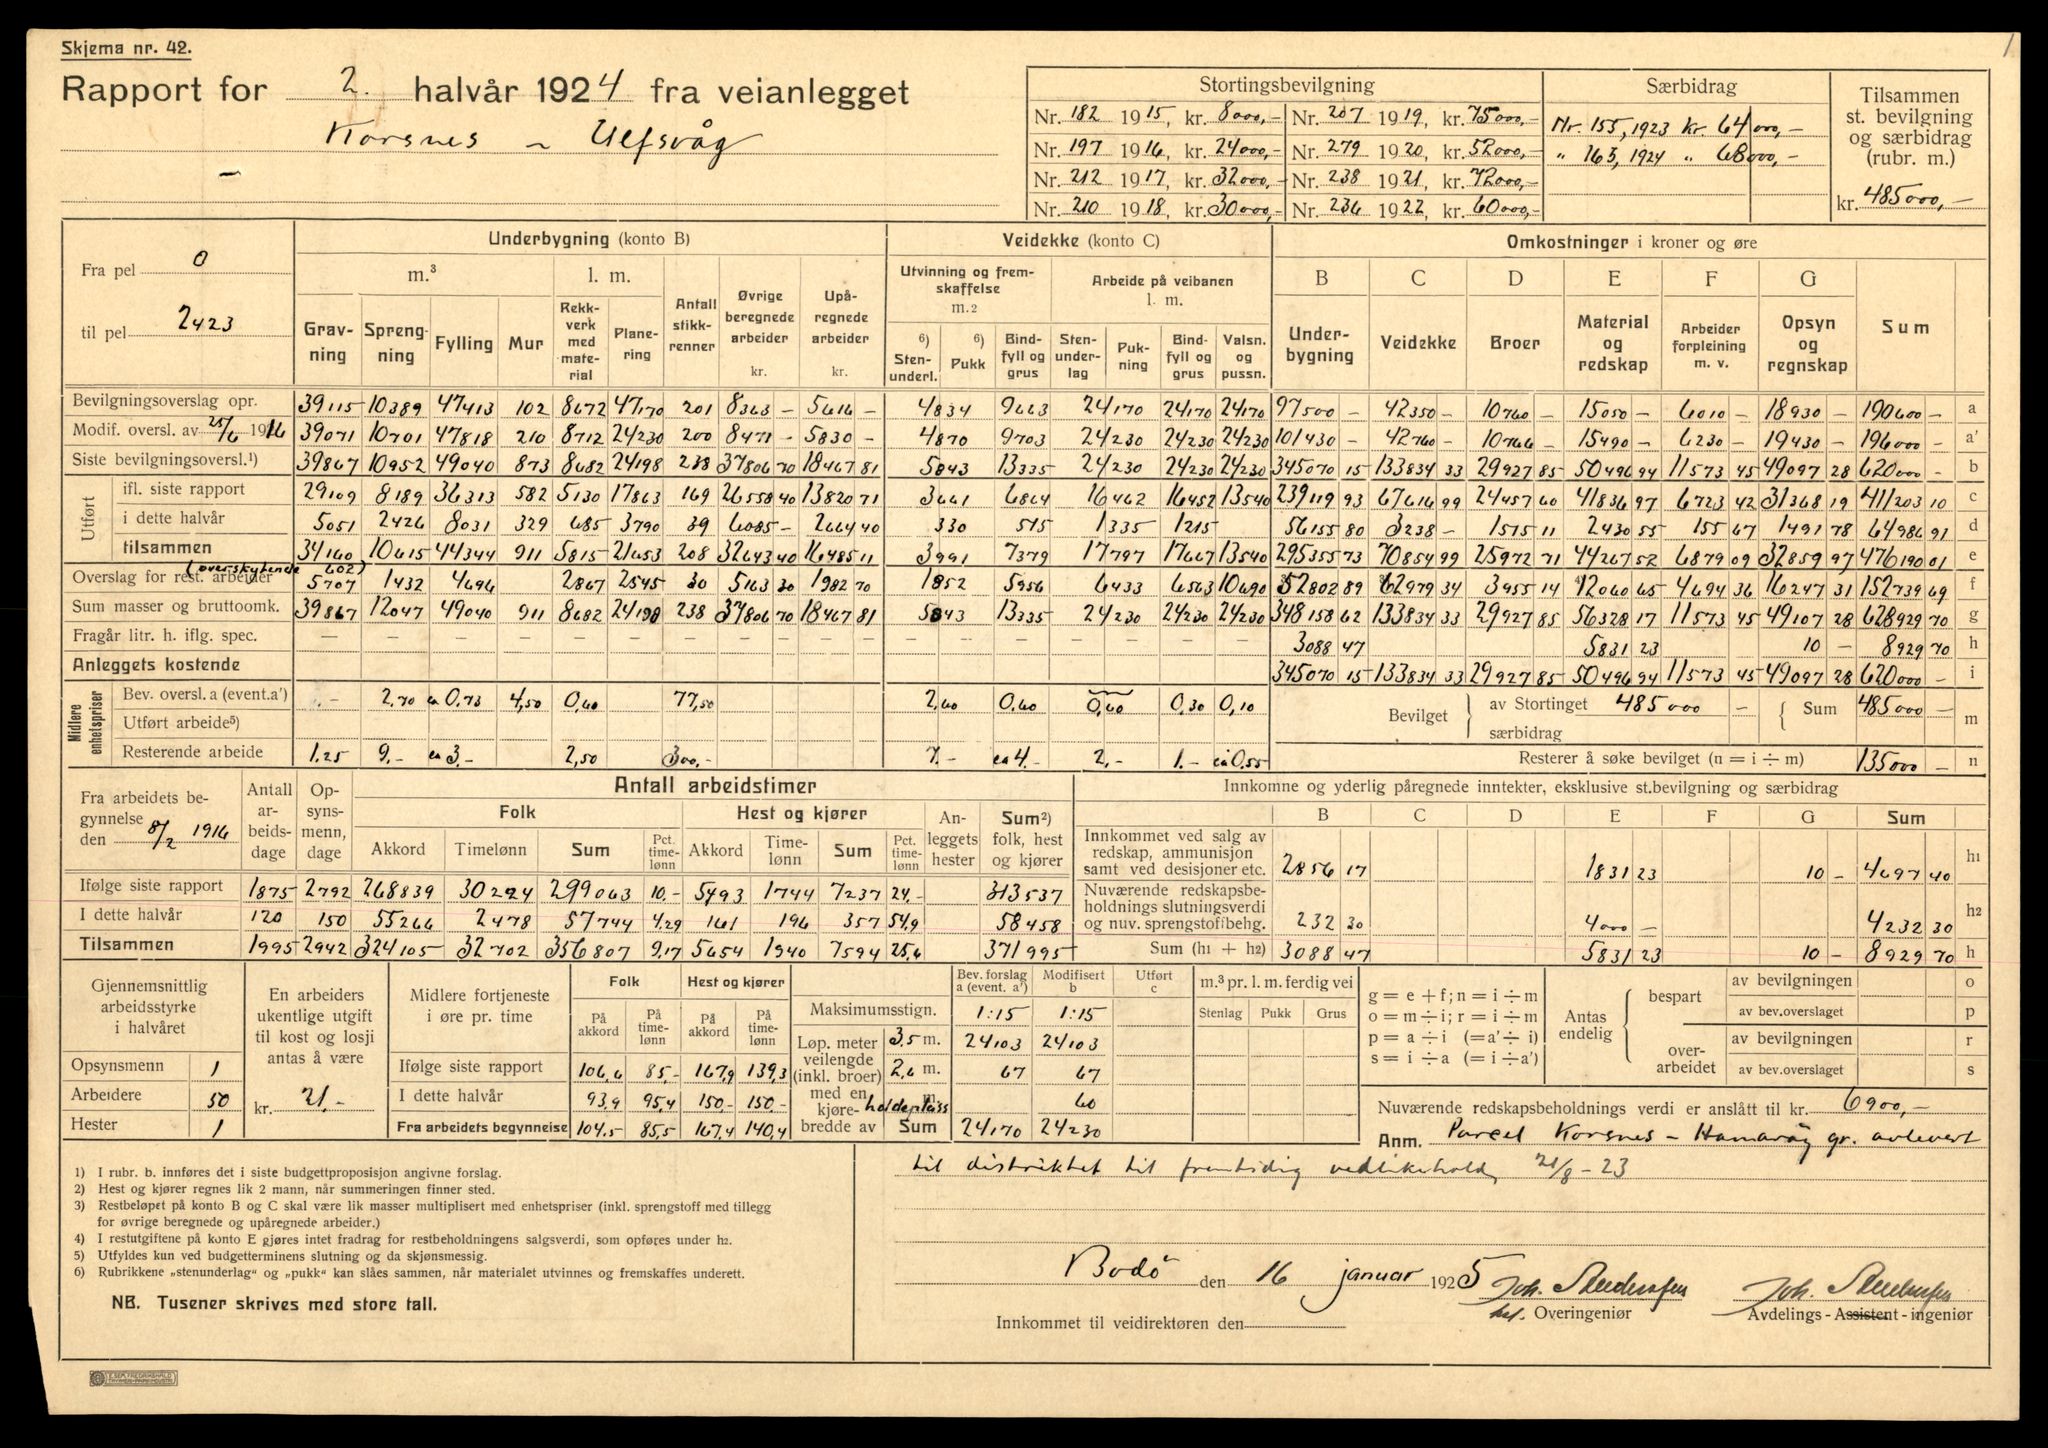 Skjema nr. 42.
1
Rapport for 2. halvår 1924 fra veianlegget
Korsnes - Ulfsvåg
Stortingsbevilgning Særbidrag Tilsammen st. bevilgning og særbidrag (rubr. m.)
Nr. 182 1915, kr. 8000,- Nr. 207 1919, kr. 75000,- Nr. 155, 1923 Kr. 64000,-
Nr. 197 1916, kr. 24000,- Nr. 279 1920, kr. 52000,- " 165, 1924 " 68000,-
Nr. 212 1917, kr. 32000,- Nr. 238 1921, kr. 72000,-
Nr. 210 1918, kr. 30000,- Nr. 236 1922, kr. 60000,- kr. 485000,-
Fra pel 0
til pel 2423
Underbygning (konto B) Veidekke (konto C) Omkostninger i kroner og øre
m.³ l. m. Antall stikkrenner Øvrige beregnede arbeider kr. Upåregnede arbeider kr. Utvinning og fremskaffelse m.2 Arbeide på veibanen l. m. B C D E F G Sum
Gravning Sprengning Fylling Mur Rekkverk med material Planering 6) Stenunderl. 6) Pukk Bindfyll og grus Stenunderlag Pukning Bindfyll og grus Valsn. og pussn. Underbygning Veidekke Broer Material og redskap Arbeider forpleining m. v. Opsyn og regnskap
Bevilgningsoverslag opr. 39115 10389 47413 102 8672 47170 201 8363 - 5616 - 4834 9663 24170 24170 24170 97500 - 42350 - 10760 - 15050 - 6010 - 18930 - 190600 - a
Modif. oversl. av 25/6 1916 39071 10701 47818 210 8712 24230 200 8471 - 5830 - 4870 9703 24230 24230 24230 101430 - 42760 - 10766 - 15490 - 6230 - 19430 - 196000 - a'
Siste bevilgningsoversl.¹) 39867 10952 49040 873 8682 24198 238 37806 70 18467 81 5843 13335 24230 24230 24230 345070 15 133834 33 29927 85 50496 94 11573 45 49097 28 620000 - b
Utført
ifl. siste rapport 29109 8189 36313 582 5130 17863 169 26558 40 13820 71 3661 6864 16462 16452 13540 239119 93 67616 99 24457 60 41836 97 6723 42 31368 19 411203 10 c
i dette halvår 5051 2426 8031 329 685 3790 39 6085 - 2664 40 330 515 1335 1215 56155 80 3238 - 1515 11 2430 55 155 67 1491 78 64986 91 d
tilsammen 34160 10615 44344 911 5815 21653 208 32643 40 16485 11 3991 7379 17797 17667 13540 295355 73 70854 99 25972 71 44267 52 6879 09 32859 97 476190 01 e
(overskytende 602)
Overslag for rest. arbeider 5707 1432 4696 2867 2545 30 5163 30 1982 70 1852 5956 6433 6563 10690 52802 89 62979 34 3955 14 12060 65 4694 36 16247 31 152739 69 f
Sum masser og bruttoomk. 39867 12047 49040 911 8682 24198 238 37806 70 18467 81 5843 13335 24230 24230 24230 348158 62 133834 33 29927 85 56328 17 11573 45 49107 28 628929 70 g
Fragår litr. h. iflg. spec. 3088 47 5831 23 10 - 8929 70 h
Anleggets kostende 345070 15 133834 33 29927 85 50496 94 11573 45 49097 28 620000 - i
Midlere enhetspriser
Bev. oversl. a (event. a') 2,70 ca 0,73 4,50 0,60 77,50 2,60 0,60 0,60 0,30 0,10
Utført arbeide⁵)
Resterende arbeide 1.25 9.- ca 3.- 2,50 300,- 7.- ca 4.- 2,- 1.- ca 0.55
Bevilget av Stortinget 485000 - Sum 485000 - m
særbidrag
Resterer å søke bevilget (n = i ÷ m) 135000 - n
Fra arbeidets begynnelse den 8/2 1916
Antall arbeidsdage Opsynsmenn, dage Antall arbeidstimer
Folk Hest og kjører Anleggets hester Sum²) folk, hest og kjører
Akkord Timelønn Sum Pct. timelønn Akkord Timelønn Sum Pct. timelønn
Ifølge siste rapport 1875 2792 268839 30224 299063 10.- 5493 1744 7237 24.- 313537
I dette halvår 120 150 55266 2478 57744 4.29 161 196 357 54,9 58458
Tilsammen 1995 2942 324105 32702 356807 9,17 5654 1940 7594 25,6 371995
Innkomne og yderlig påregnede inntekter, eksklusive st.bevilgning og særbidrag
B C D E F G Sum
Innkommet ved salg av redskap, ammunisjon samt ved desisjoner etc. 2856 17 1831 23 10 - 4697 40 h1
Nuværende redskapsbeholdnings slutningsverdi og nuv. sprengstofbehg. 232 30 4000 - 4232 30 h2
Sum (h1 + h2) 3088 47 5831 23 10 - 8929 70 h
Gjennemsnittlig arbeidsstyrke i halvåret
Opsynsmenn 1
Arbeidere 50
Hester 1
En arbeiders ukentlige utgift til kost og losji antas å være
kr. 21.-
Midlere fortjeneste i øre pr. time Folk Hest og kjører
På akkord På timelønn På akkord På timelønn
Ifølge siste rapport 106,6 85,- 167,9 139,3
I dette halvår 93,9 95,4 150,- 150.-
Fra arbeidets begynnelse 104,5 85,5 167,4 140,4
Bev. forslag a (event. a') Modifisert b Utført c
Maksimumsstign. 1:15 1:15
Løp. meter veilengde (inkl. broer) med en kjørebredde av
3,5 m. 24103 24103
2,6 m. 67 67
m holdeplass 60
Sum 24170 24230
m.³ pr. l. m. ferdig vei
Stenlag Pukk Grus
g = e + f; n = i ÷ m
o = m ÷ i; r = i ÷ m
p = a ÷ i (= a' ÷ i)
s = i ÷ a (= i ÷ a')
Antas endelig bespart av bevilgningen o
av bev.overslaget p
overarbeidet av bevilgningen r
av bev.overslaget s
Nuværende redskapsbeholdnings verdi er anslått til kr. 6900,-
Anm. Parcel Korsnes - Hamarøy gr. avlevert
til distriktet til fremtidig vedlikehold 21/8 - 23
1) I rubr. b. innføres det i siste budgettproposisjon angivne forslag.
2) Hest og kjører regnes lik 2 mann, når summeringen finner sted.
3) Restbeløpet på konto B og C skal være lik masser multiplisert med enhetspriser (inkl. sprengstoff med tillegg
for øvrige beregnede og upåregnede arbeider.)
4) I restutgiftene på konto E gjøres intet fradrag for restbeholdningens salgsverdi, som opføres under h2.
5) Utfyldes kun ved budgetterminens slutning og da skjønsmessig.
6) Rubrikkene „stenunderlag" og „pukk" kan slåes sammen, når materialet utvinnes og fremskaffes underett.
NB. Tusener skrives med store tall.
Bodø den 16 januar 1925
Overingeniør Avdelings-Assistent-ingeniør
Innkommet til veidirektøren den